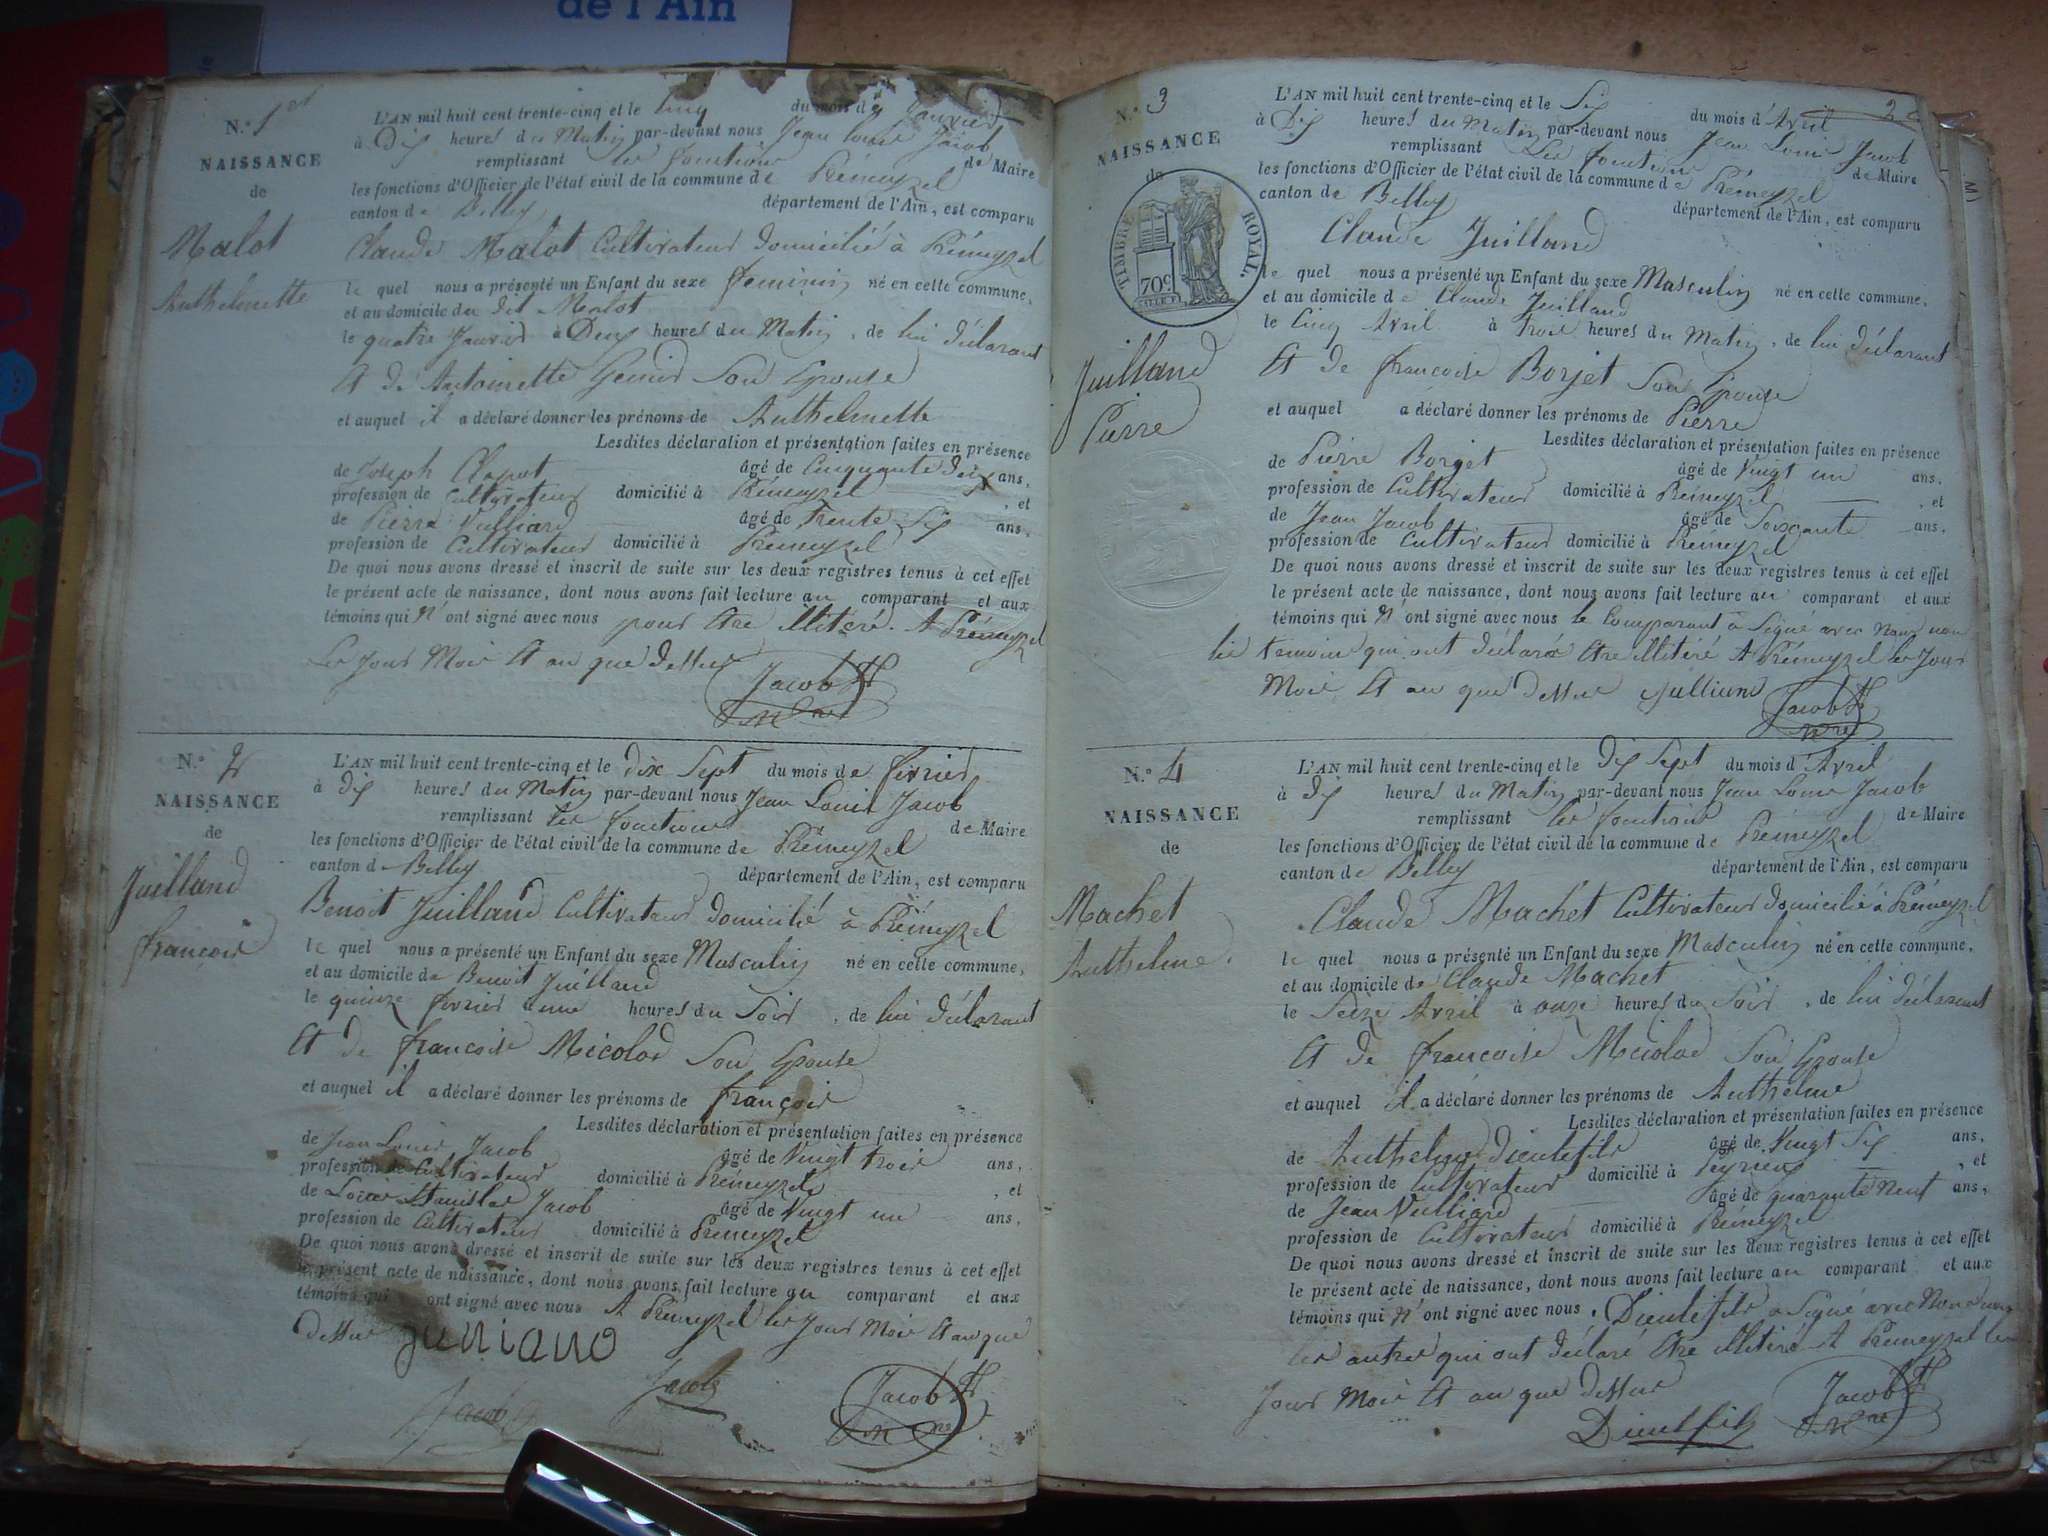 de l'Ain
N.° 1er
NAISSANCE
de
Malot
Anthelmette
L'AN mil huit cent trente-cinq et le cinq du mois de Janvier
à Dix heures du Matin par-devant nous Jean Louis Jacob
remplissant les fonctions de Maire
les fonctions d'Officier de l'état civil de la commune de Prémeyzel
canton de Belley département de l'Ain, est comparu
Claude Malot Cultivateur domicilié à Prémeyzel
le quel nous a présenté un Enfant du sexe feminin né en cette commune,
et au domicile du dit Malot
le quatre Janvier à Deux heures du Matin, de lui déclarant
Et de Antoinette Son Epouse
et auquel il a déclaré donner les prénoms de Anthelmette
Lesdites déclaration et présentation faites en présence
de Joseph Clapot âgé de Cinquante deux ans,
profession de Cultivateur domicilié à Prémeyzel, et
de Pierre Vulliard âgé de Trente Six ans,
profession de Cultivateur domicilié à Prémeyzel
De quoi nous avons dressé et inscrit de suite sur les deux registres tenus à cet effet
le présent acte de naissance, dont nous avons fait lecture au comparant et aux
témoins qui n'ont signé avec nous pour Etre illiteré. A Prémeyzel
Les Jour Mois Et an que dessus Jacob
N.° 2
NAISSANCE
de
Juilland
françois
L'AN mil huit cent trente-cinq et le dix Sept du mois de fevrier
à dix heures du Matin par-devant nous Jean Louis Jacob
remplissant les fonctions de Maire
les fonctions d'Officier de l'état civil de la commune de Prémeyzel
canton de Belley département de l'Ain, est comparu
Benoit Juilland Cultivateur domicilié à Prémeyzel
le quel nous a présenté un Enfant du sexe Masculin né en cette commune,
et au domicile de Benoit Juilland
le quinze fevrier à une heures du Soir, de lui déclarant
Et de francoise Micolod Son Epouse
et auquel il a déclaré donner les prénoms de françois
Lesdites déclaration et présentation faites en présence
de Jean Louis Jacob âgé de Vingt trois ans,
profession de Cultivateur domicilié à Prémeyzel, et
de Louis Stanislas Jacob âgé de Vingt un ans,
profession de Cultivateur domicilié à Prémeyzel
De quoi nous avons dressé et inscrit de suite sur les deux registres tenus à cet effet
le présent acte de naissance, dont nous avons fait lecture au comparant et aux
témoins qui ont signé avec nous A Prémeyzel les Jour Mois Et an que
dessus
Jacob Jacob Jacob
2
N.° 3
NAISSANCE
de
TIMBRE ROYAL.
70c
Juilland
Pierre
L'AN mil huit cent trente-cinq et le Six du mois d'Avril
à Dix heures du Matin par-devant nous Jean Louis Jacob
remplissant Les fonctions de Maire
les fonctions d'Officier de l'état civil de la commune de Prémeyzel
canton de Belley département de l'Ain, est comparu
Claude Juilland
le quel nous a présenté un Enfant du sexe Masculin né en cette commune,
et au domicile de Claude Juilland
le Cinq Avril à trois heures du Matin, de lui déclarant
Et de francoise Borjet Son Epouse
et auquel a déclaré donner les prénoms de Pierre
Lesdites déclaration et présentation faites en présence
de Pierre Borget âgé de Vingt un ans,
profession de Cultivateur domicilié à Prémeyzel, et
de Jean Jacob âgé de Soixante ans,
profession de Cultivateur domicilié à Prémeyzel
De quoi nous avons dressé et inscrit de suite sur les deux registres tenus à cet effet
le présent acte de naissance, dont nous avons fait lecture au comparant et aux
témoins qui n'ont signé avec nous le Comparant à Signé avec Nous non
les temoins qui ont déclaré Etre illitéré A Prémeyzel les Jour
Mois Et an que dessus Jacob
N.° 4
NAISSANCE
de
Machet
Anthelme
L'AN mil huit cent trente-cinq et le dix Sept du mois d'Avril
à dix heures du Matin par-devant nous Jean Louis Jacob
remplissant les fonctions de Maire
les fonctions d'Officier de l'état civil de la commune de Prémeyzel
canton de Belley département de l'Ain, est comparu
Claude Machet Cultivateur domicilié à Prémeyzel
le quel nous a présenté un Enfant du sexe Masculin né en cette commune,
et au domicile de Claude Machet
le Seize Avril à onze heures du Soir, de lui déclarant
Et de francoise Son Epouse
et auquel il a déclaré donner les prénoms de Anthelme
Lesdites déclaration et présentation faites en présence
de Anthelme Dieulefils âgé de Vingt Six ans,
profession de Cultivateur domicilié à Peyrieu, et
de Jean Vulliard âgé de quarante neuf ans,
profession de Cultivateur domicilié à Prémeyzel
De quoi nous avons dressé et inscrit de suite sur les deux registres tenus à cet effet
le présent acte de naissance, dont nous avons fait lecture au comparant et aux
témoins qui n'ont signé avec nous. Dieulefils à Signé avec Nous
les autres qui ont déclaré Etre illitéré A Prémeyzel les
Jour Mois Et an que dessus Jacob